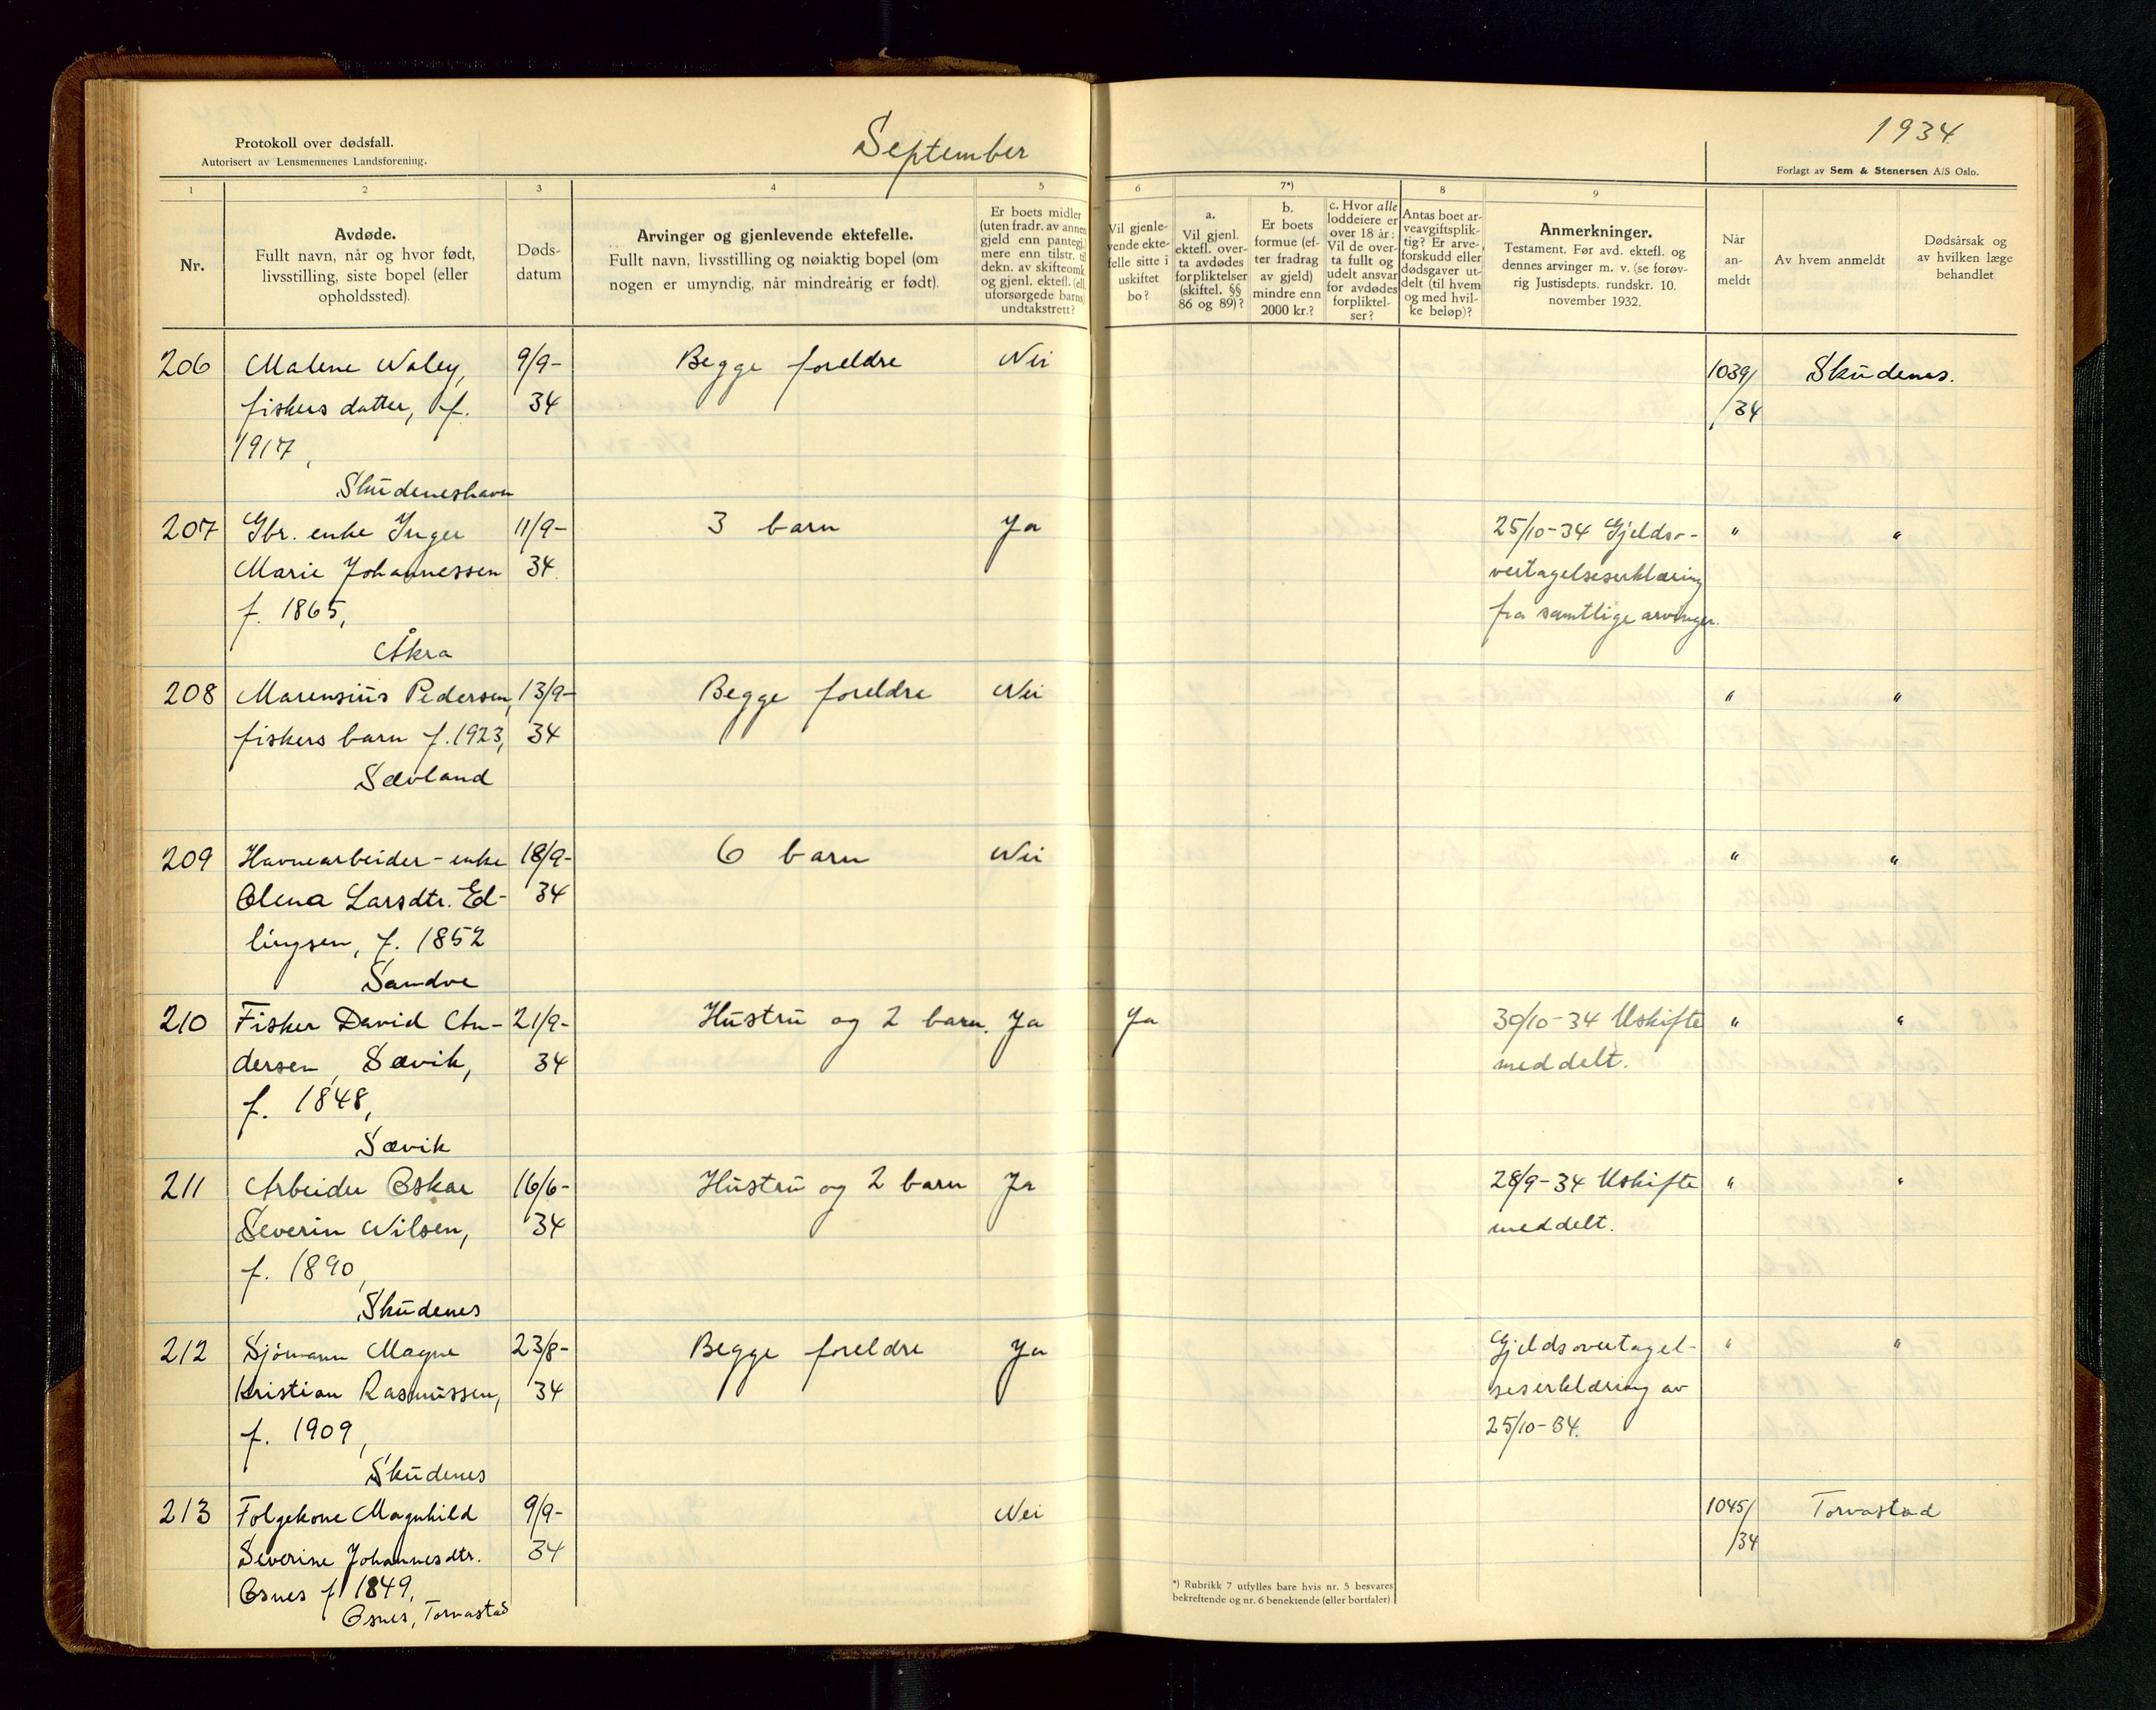 Protokoll over dødsfall.
Autorisert av Lensmennenes Landsforening.
September
1934.
Forlagt av Sem & Stenersen A/S Oslo.
1 2 3 4 5 6 7*) 8 9
Nr.
Avdøde.
Fullt navn, når og hvor født,
livsstilling, siste bopel (eller
opholdssted).
Døds-
datum
Arvinger og gjenlevende ektefelle.
Fullt navn, livsstilling og nøiaktig bopel (om
nogen er umyndig, når mindreårig er født).
Er boets midler
(uten fradr. av annen
gjeld enn pantegj.)
mere enn tilstr. til
dekn. av skifteomk.
og gjenl. ektefl. (ell.
uforsørgede barns)
undtakstrett?
Vil gjenle-
vende ekte-
felle sitte i
uskiftet
bo?
a.
Vil gjenl.
ektefl. over-
ta avdødes
forpliktelser
(skiftel. §§
86 og 89)?
b.
Er boets
formue (ef-
ter fradrag
av gjeld)
mindre enn
2000 kr.?
c. Hvor alle
loddeiere er
over 18 år:
Vil de over-
ta fullt og
udelt ansvar
for avdødes
forpliktel-
ser?
Antas boet ar-
veavgiftsplik-
tig? Er arve-
forskudd eller
dødsgaver ut-
delt (til hvem
og med hvil-
ke beløp)?
Anmerkninger.
Testament. Før avd. ektefl. og
dennes arvinger m. v. (se forøv-
rig Justisdepts. rundskr. 10.
november 1932.
Når
an-
meldt
Av hvem anmeldt
Dødsårsak og
av hvilken læge
behandlet
206 Malene Waley, 9/9- Begge foreldre Nei 1039/ Skudenes.
fiskers datter, f. 34 /34
1917,
Skudeneshavn
207 Gbr. enke Inger 11/9- 3 barn Ja 25/10-34 Gjeldso- " "
Marie Johannessen 34. vertagelseserklæring
f. 1865, fra samtlige arvinger.
Åkra
208 Marensius Pedersen, 13/9- Begge foreldre Nei " "
fiskers barn f. 1923, 34
Sævland
209 Havnearbeider-enke 18/9- 6 barn Nei " "
Olena Larsdtr. Ed- 34
lingsen, f. 1852
Sandve
210 Fisker David An- 21/9- Hustru og 2 barn. Ja Ja 30/10-34 Uskifte " "
dersen, Sævik, 34 meddelt.
f. 1848,
Sævik
211 Arbeider Oskar 16/6- Hustru og 2 barn Ja 28/9-34 Uskifte " "
Severin Nilsen, 34 meddelt.
f. 1890,
Skudenes
212 Sjömann Magne 23/8- Begge foreldre Ja Gjeldsovertagel- " "
Kristian Rasmussen, 34 seserklæring av
f. 1909, 25/10-34.
Skudenes
213 Folgekone Magnhild 9/9- Nei 1045/ Torvastad
Severine Johannesdtr. 34 /34
Osnes f. 1849,
Osnes, Torvastad
*) Rubrikk 7 utfylles bare hvis nr. 5 besvares
bekreftende og nr. 6 benektende (eller bortfaler).